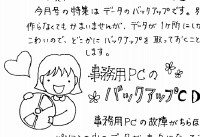 今月号の特集はデータのバックアップです。
作らなくてもかまいませんが、データが1か所にし
こわいので、どこかにバックアップを取っておくこと
します。
事務用PCの
バックアップCD
事務用PCの故障がちら日